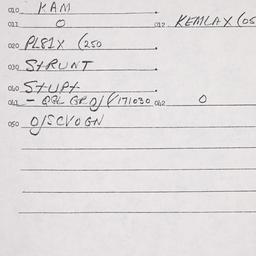 010 KAM
011 O 012 KEMLAX (05
020 PL81X (250
030 STRUNT
040 STUPT
041 - QQL GROJ (171030 042 O
050 O/SCVOGN